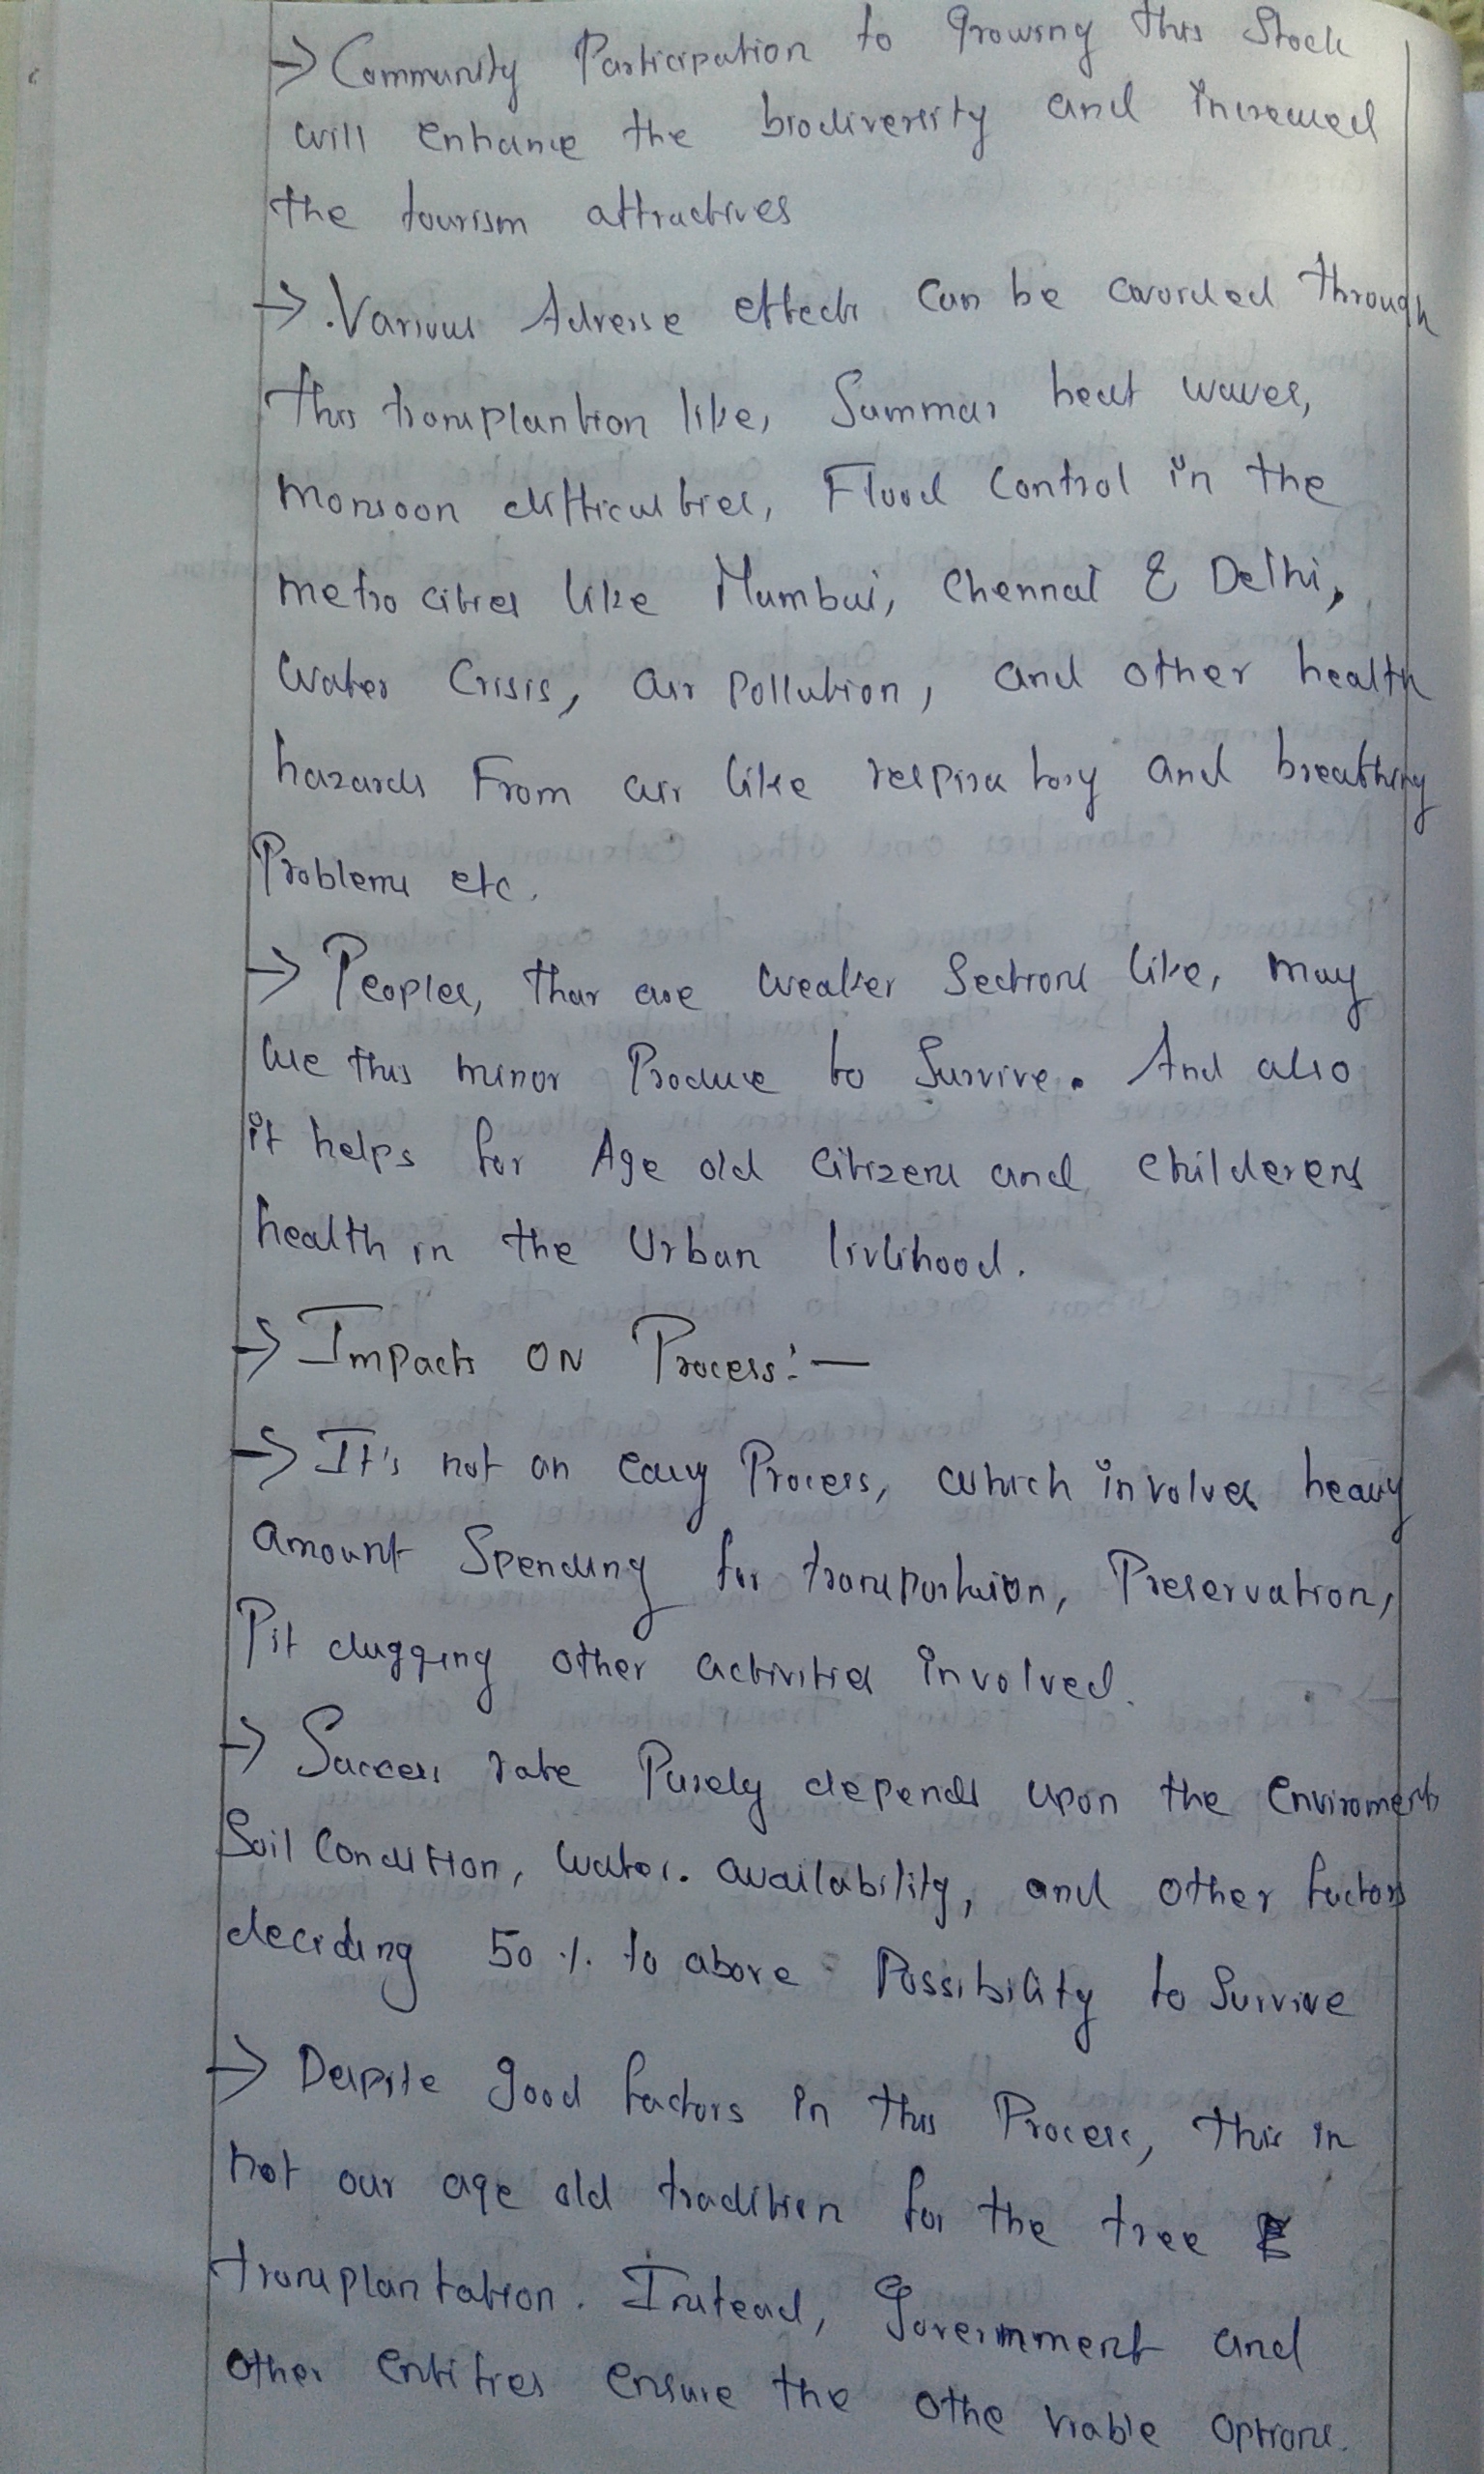 → Community Participation to Growing this Stock
will enhance the biodiversity and increased
the tourism attractives
→ Various Adverse effects, Can be avoided through
this transplantion like, Summar heat waves,
monsoon difficulties, Flood Control in the
metro cities like Mumbai, Chennai & Delhi,
Water Crisis, air pollution, and other health
hazards From air like respiratory and breathing
Problems etc.
→ Peoples, that are weaker Sections like, may
use this minor Produce to Survive. And also
it helps for Age old Citizens and childerens
health in the Urban livlihood.
→ Impacts ON Process:—
→ It's not an easy Process, which involves heavy
amount Spending for transportaion, Preservation,
Pit dugging other activities involved.
→ Success rate Purely depends upon the Enviroments
Soil Condition, Water. availability, and other factors
deciding 50 % to above Possibility to Survive
→ Despite good factors in this Process, this in
not our age old tradition for the tree
transplantation. Instead, Government and
other entities ensure the othe viable options.